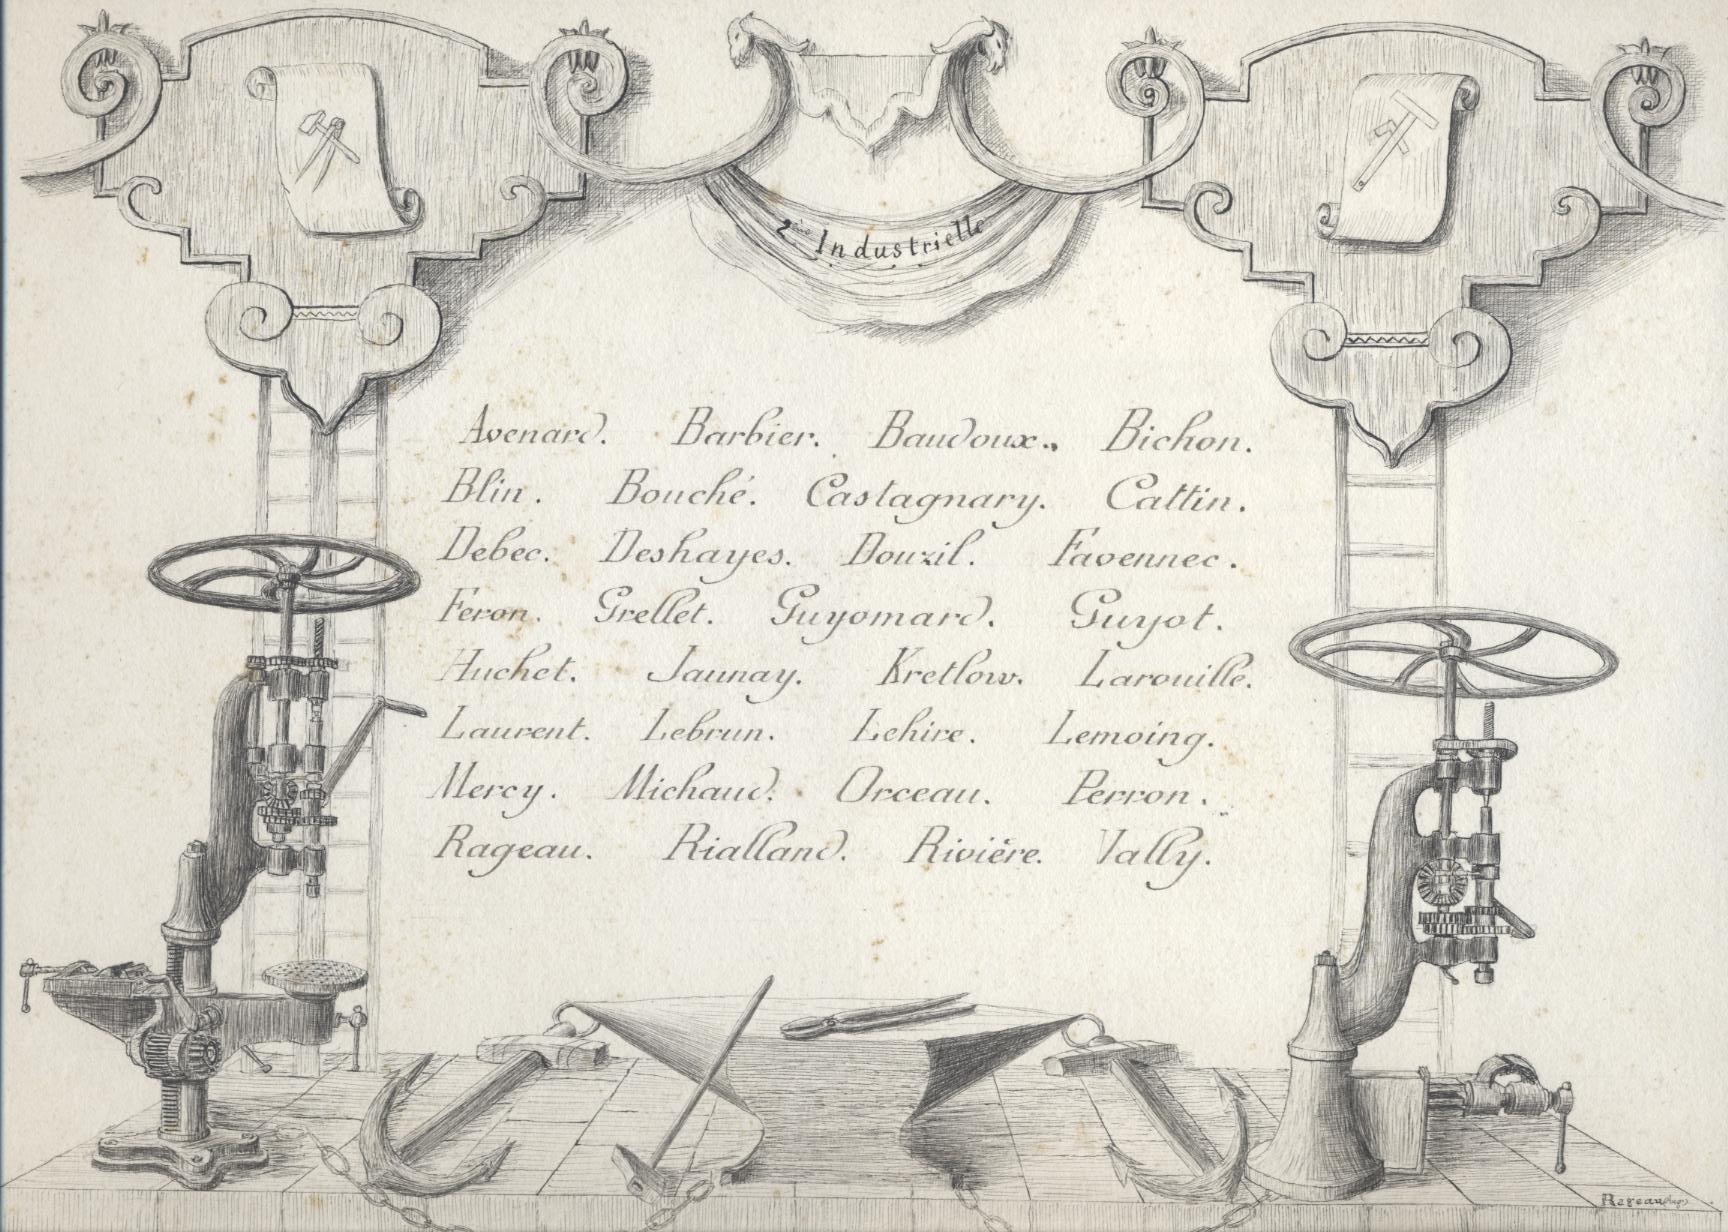 2ème Industrielle
Avenard. Barbier. Baudoux. Bichon.
Blin. Bouché. Castagnary. Cattin.
Debec. Deshayes. Douzil. Favennec.
Feron. Grellet. Guyomard. Guyot.
Huchet. Jaunay. Kretlow. Larouille.
Laurent. Lebrun. Lehire. Lemoing.
Mercy. Michaud. Orceau. Perron.
Rageau. Rialland. Rivière. Vally.
Rageau